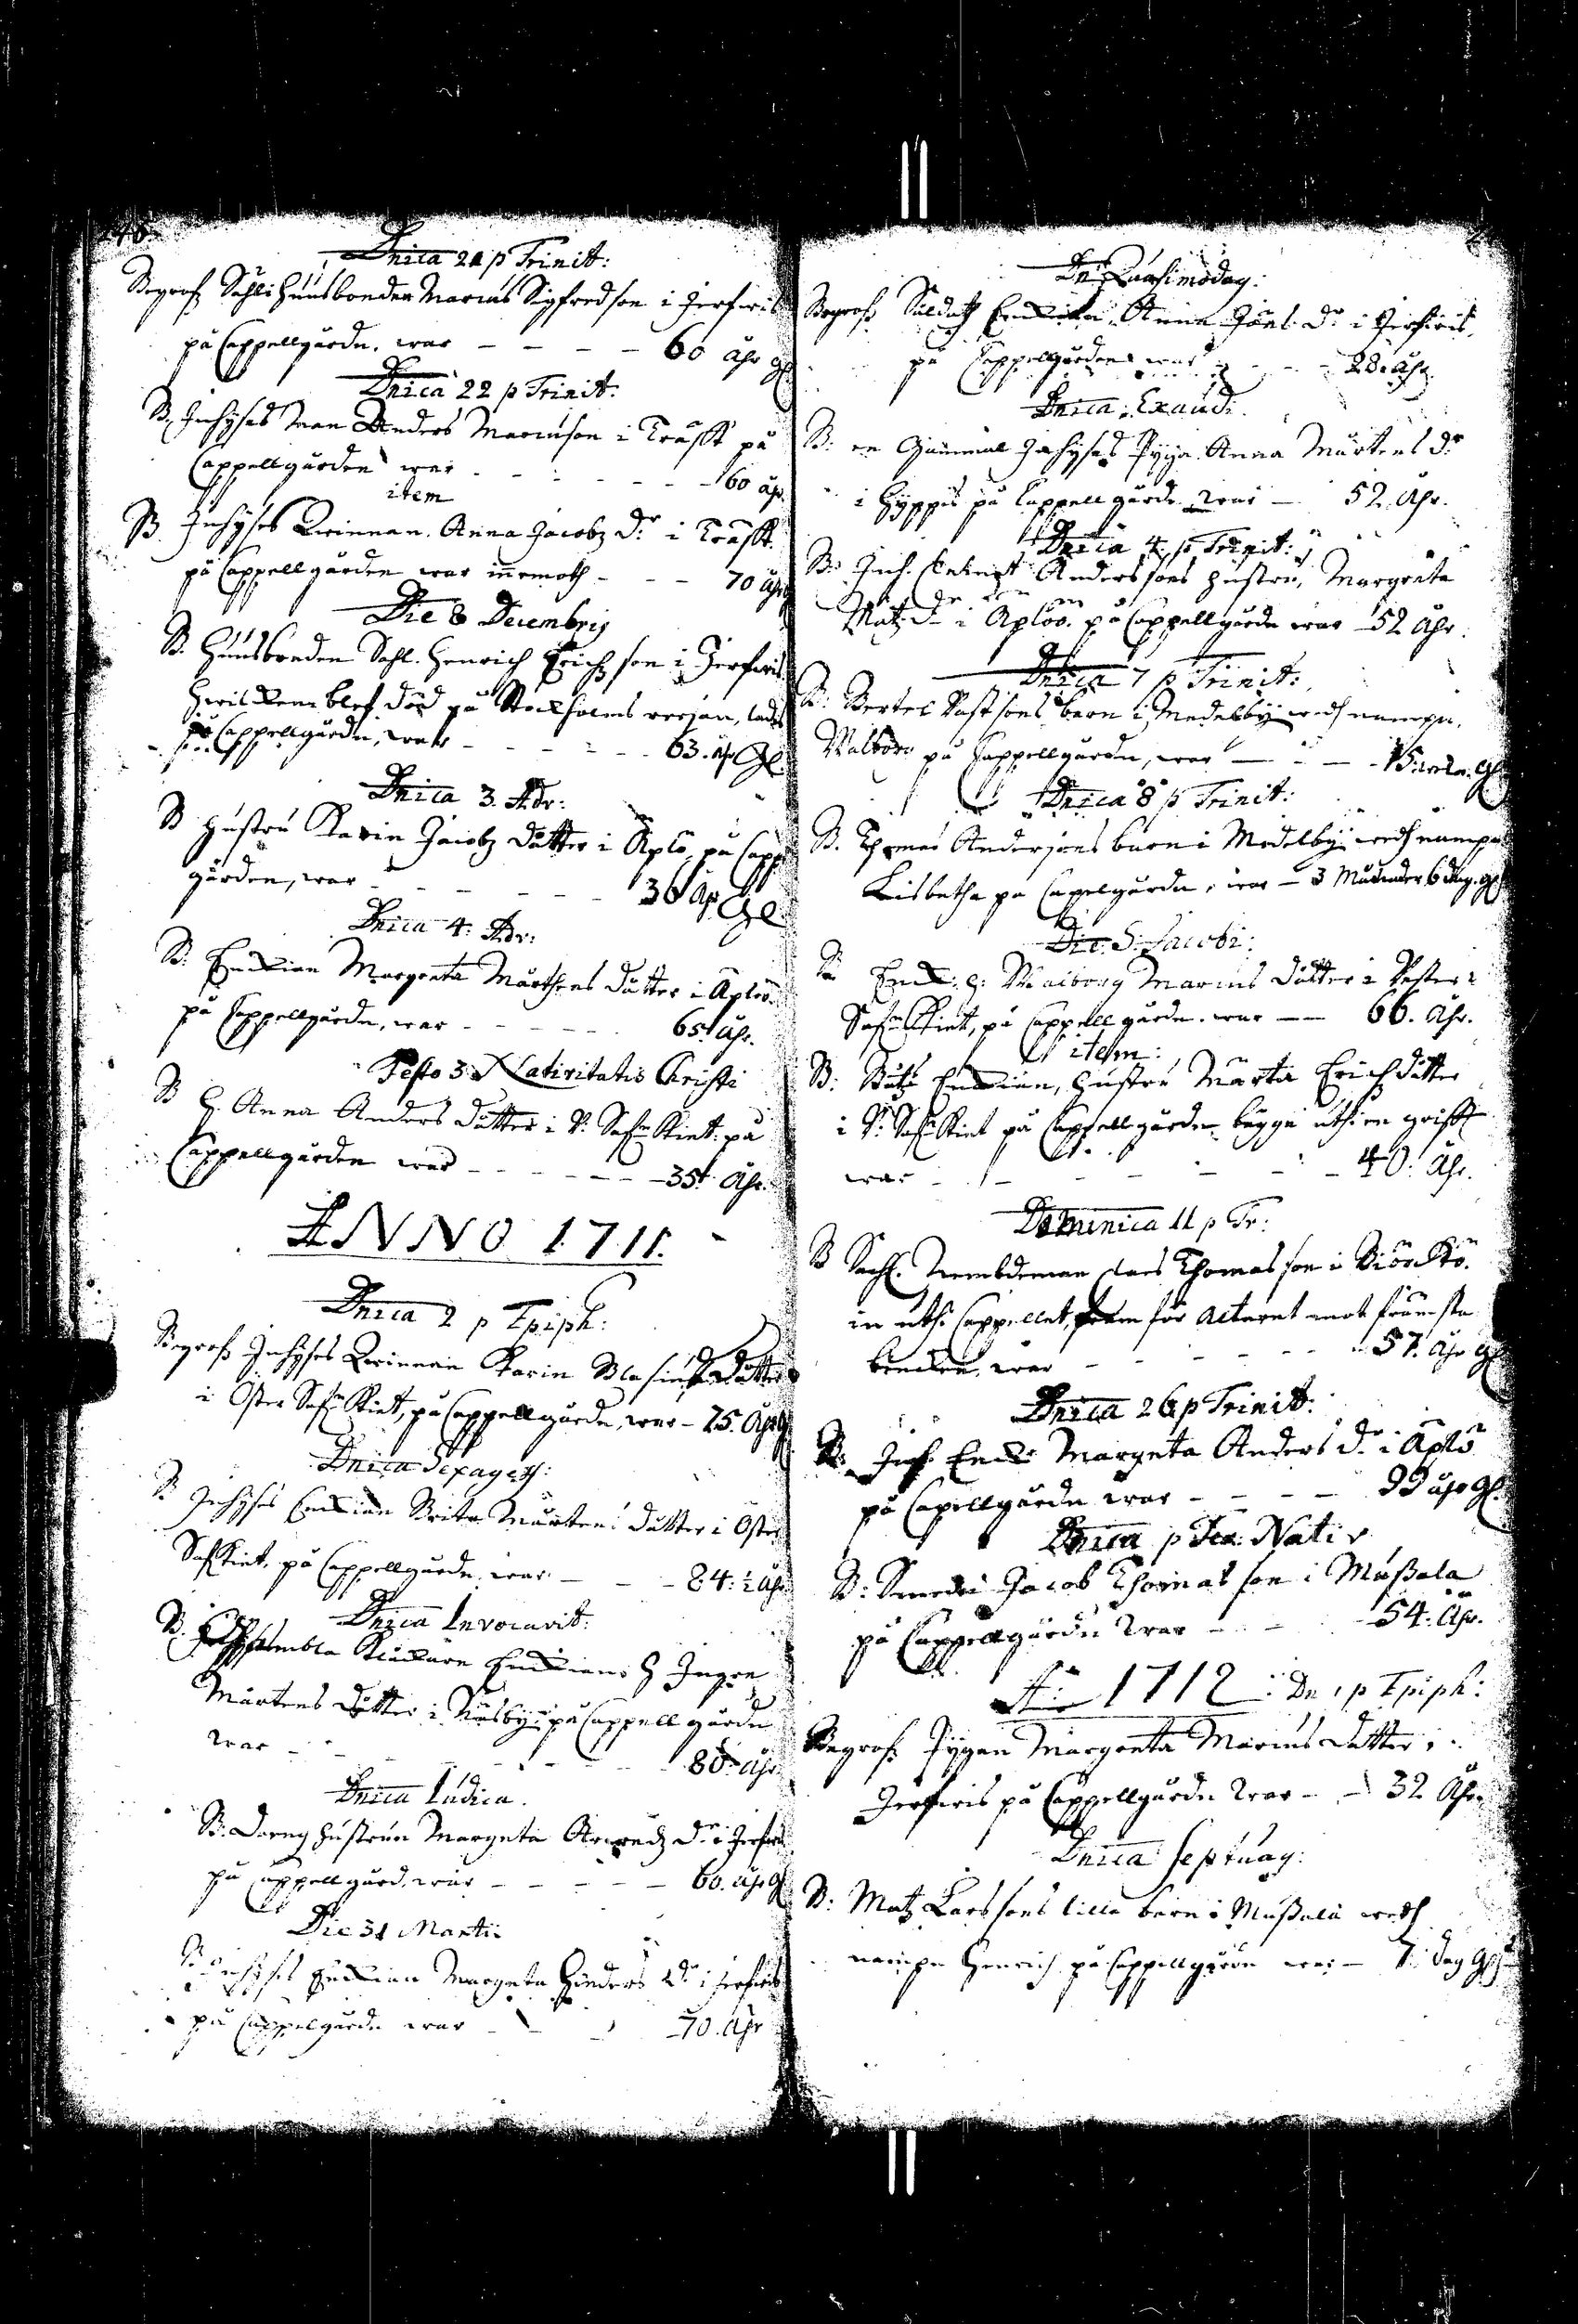 Dnica 21 p Trinit:
Begrofz Sahl: Huusbonden Marcus Sigfredson i Jerfwis
på Cappellgårdn. war - - - - 60 åhr gl
Dnica 22 p Trinit:
B. Inhyses Man Anders Marcuson i Träsk på
Cappellgården war - - - - - 60 åhr
item
B. Inhyses Qwinnan. Anna Jacobz Dr i Träsk
på Cappellgården war moth - - - 70 åhr
Die 8 Decembris
B. Huusbonden Sahl. Henrich Erichson i Jerfwis
hwilken blef död på Stockholms reesan, lades
på Cappellgårdn, war - - - - - 63. åhr Gl.
Dnica 3. Adv:
B hustru Karin Jacobz dåtter i Äplö, på Capp
gården, war - - - - - 36 åhr Gl.
Dnica 4. Adv:
B. Enckian Margreta Mårthens dåtter i Äplöö
på Cappellgårdn, war - - - - - 65 åhr.
Festo 3 Nativitatis Christi
B H. Anna Anders dåtter i V. kiet på
Cappellgården war - - - - - 35 åhr.
ANNO 1711.
Dnica 2 p Epiph:
Begrofz Inhyses Qwinnan Karin Blasius Dåtter
i Öster kiet, på Cappellgårdn, war - 75. åhr gl
Dnica Sexages:
B Inhyses Enckian Brita Mårtens dåtter i Öster
kiet, på Cappellgårdn war - - - 84. ½ åhr
Dnica Invocavit:
B. Enckian H Ingre
Mårtens dåtter i Näsby på Cappellgårdn
war - - - - - 80 åhr
Dnica Iudica.
B. hustrun Margreta Dr i Jerfwis
på Cappellgård. war - - - - - 60. åhr gl
Die 31 Martii
B inhyses Enckian Margreta Hinders Dr i Jerfwis
på Cappelgårdn war - - - 70. åhr
Dn: Quasimodog:
Begrofz Soldatz Enckian Anna Jöns Dr i Jerfwis,
på Cappellgården war - - - 28. åhr.
Dnica: Exaudi.
B: en Gammal Inhyses Pyga Anna Mårtens dr
i Hyppis på Cappellgårdn war - 52. åhr.
Dnica 4 p Trinit:
B: Inh. Anderssons hustru, Margreta
Matz Dr i Äplöö. på Cappellgårdn war - 52 åhr.
Dnica 7 p Trinit:
B: Bertel barn i Medelby wedh nampn,
Walborg på Cappellgårdn, war - - - 15 wekn. Gl
Dnica 8 p Trinit:
B. Thomas Andersons barn i Medelby wedh nampn
Lisbetha på Capelgårdn, war - 3 Månader 6 dag. gl
Die. S: Jacobi:
B Enck. H: Walborg Marcus dåtter i Wester
kiet, på Cappellgårdn. war - - 66. åhr.
item:
B: Enckian, hustru Märta Erichdåtter
i V: kiet på Cappellgårdn bägge uthi en grift
war - - - - - - 40. åhr.
Dominica 11 p Tr:
B Sahl. Nembdeman Lars Thomasson i Biörckö.
in uthi Cappellet, fram för Altaret mot främsta
bencken, war - - - - - - 57. åhr gl
Dnica 26 p Trinit:
B: Inh. Enck: Margreta Anders dr i Äplö
på Capellgårdn war - - - - 99 åhr gl.
Dnica p Fea: Nativ
B: Jacob Thomasson i Mußala
på Cappellgårdn war - - 54. åhr.
Ao 1712: Dn 1 p Epiph:
Begrofz Pygan Margreta Marcus dåtter i
Jerfwis på Cappellgårdn war - - 32 åhr.
Dnica Septuag:
B: Matz Larssons lilla barn i Mußala wedh
nampn Henrich på Cappellgårdn war - 7. dag